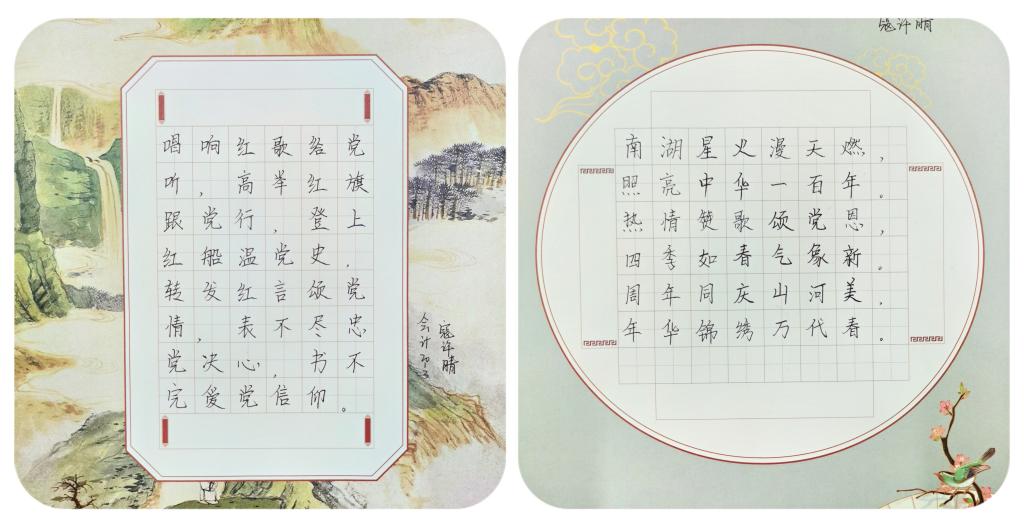 唱响红歌给党
听，高举红旗
跟党行，登上
红船温党史，
转发红言颂党
情，表不尽忠
党决心，书不
完爱党信仰。
寇许晴
会计
寇许晴
南湖星火漫天燃，
照亮中华一百年。
热情赞歌颂党恩，
四季如春气象新。
周年同庆山河美，
年华锦绣万代春。